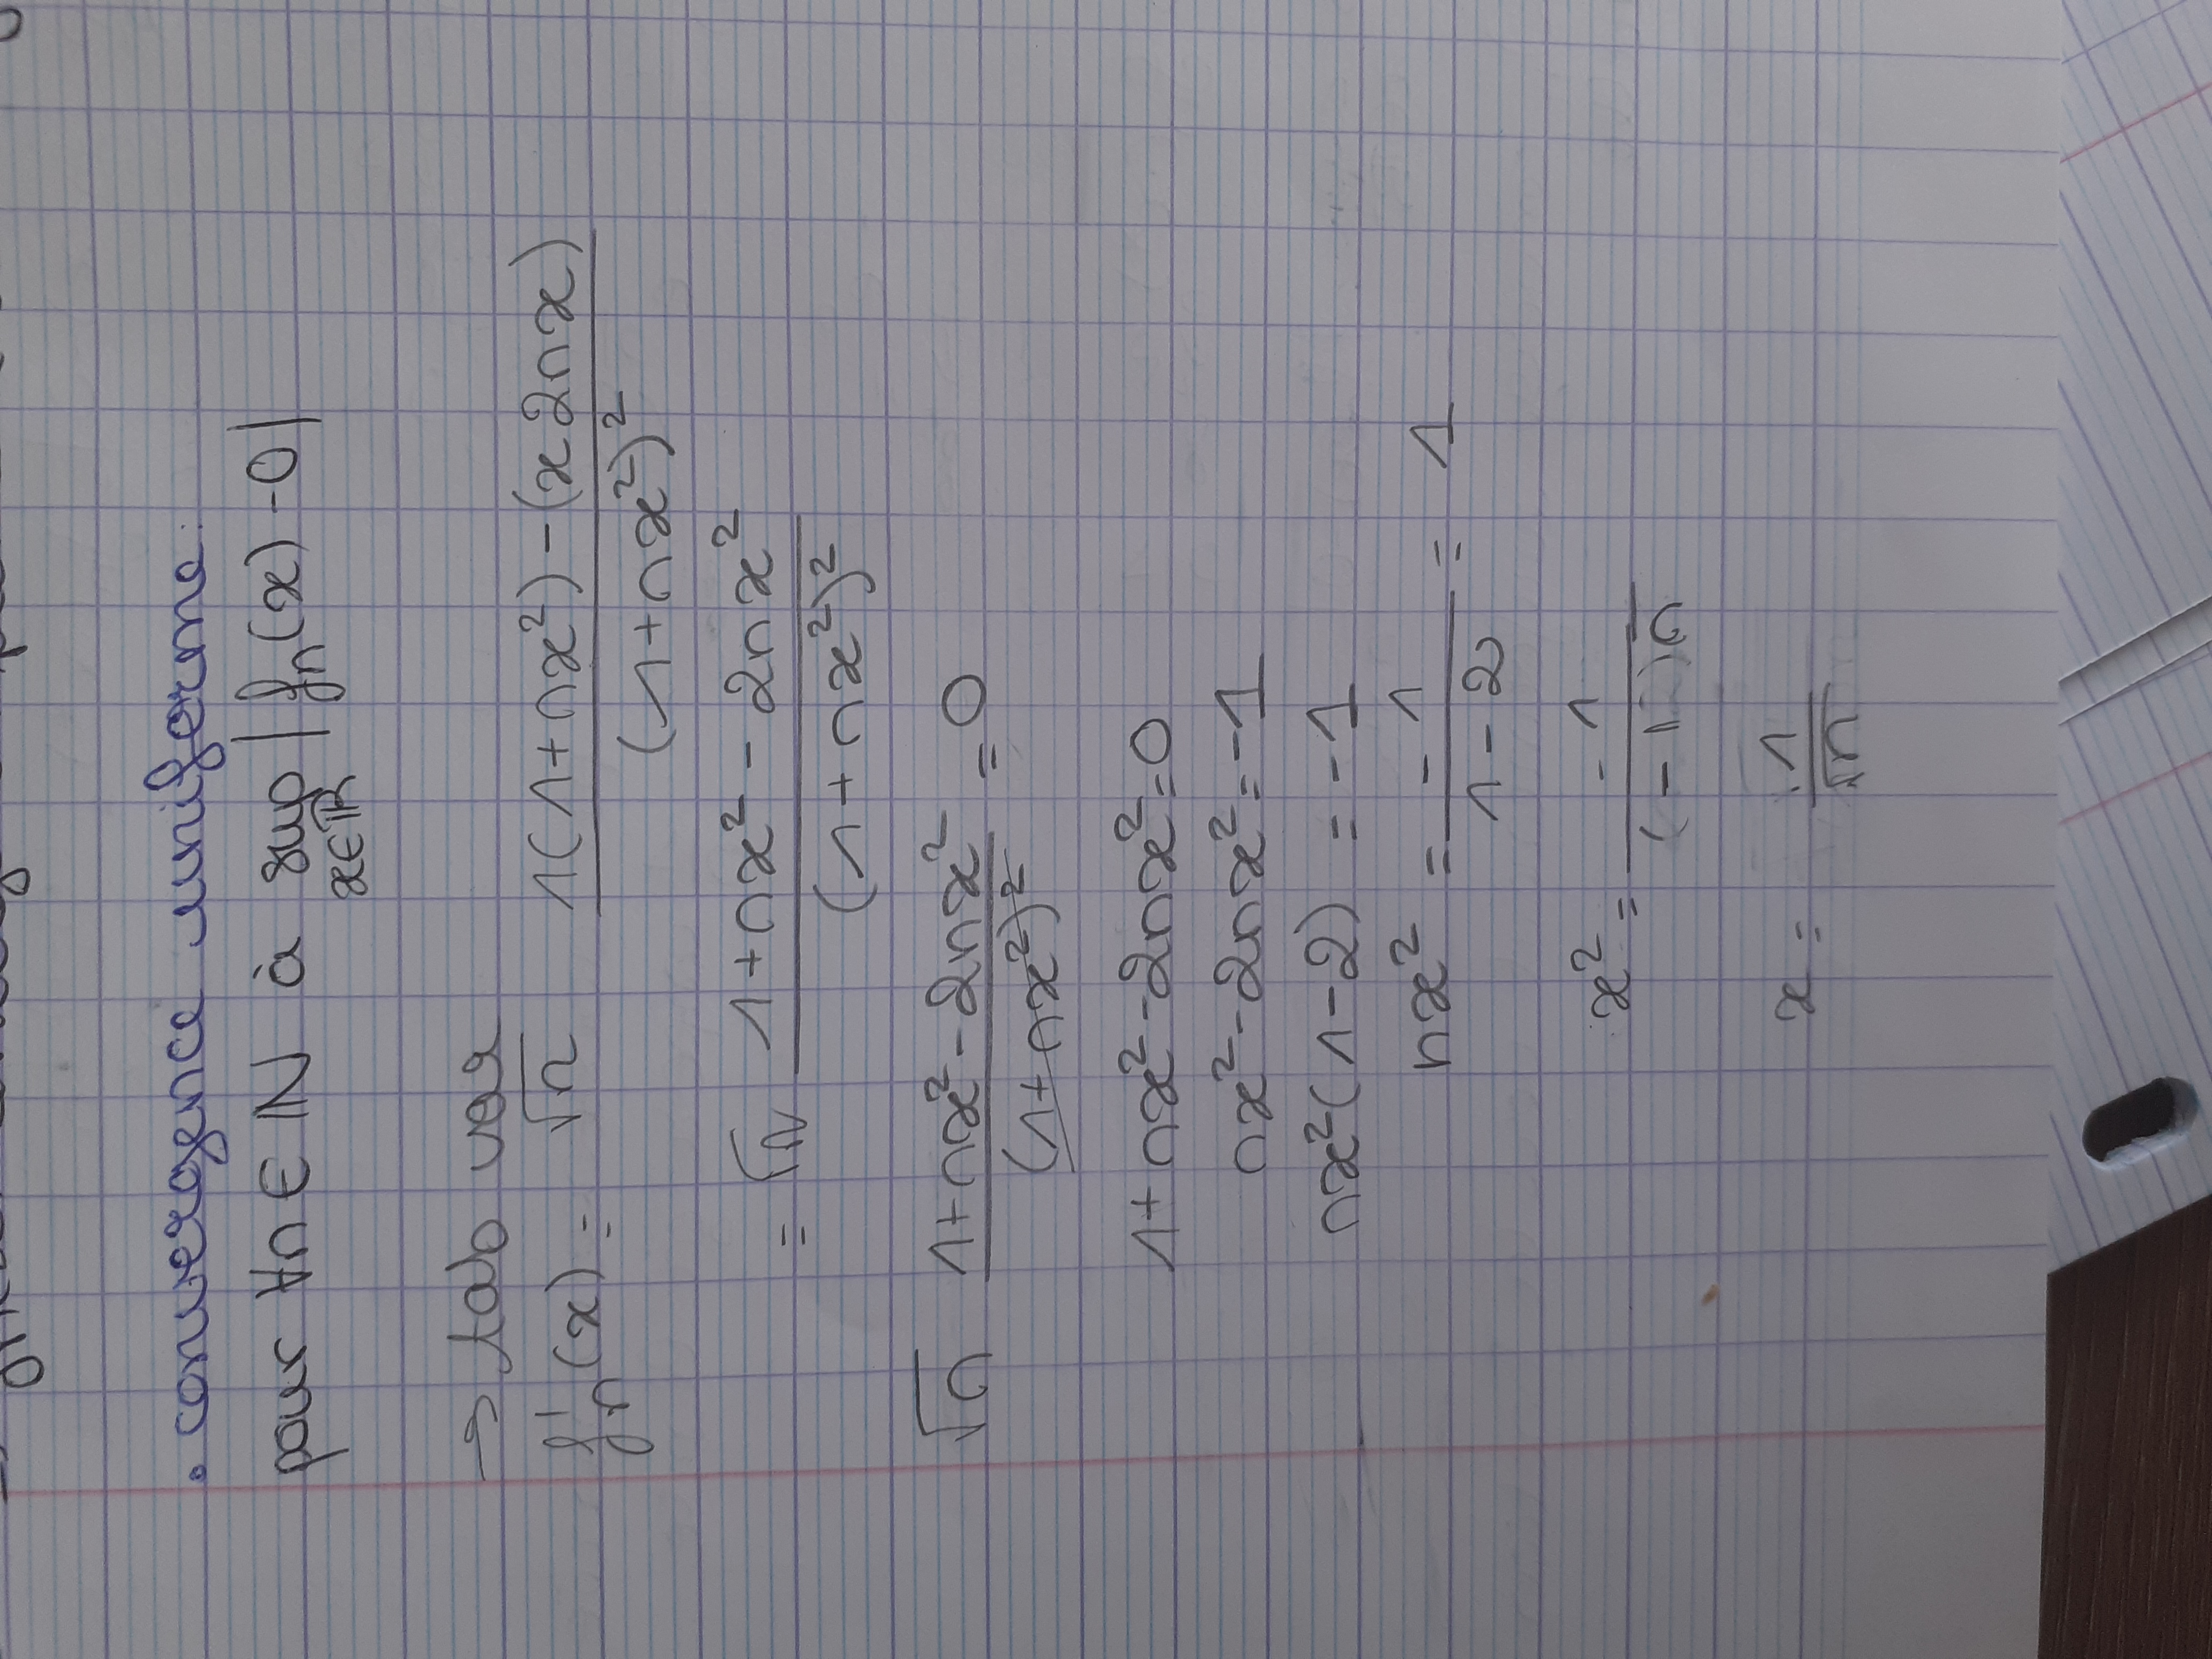 • convergence uniforme:
pour ∀n ∈ ℕ à sup |fn(x) - 0|
x∈ℝ
→ tab var
f'n(x) = √n (1(1+nx²) - (x2nx))/(1+nx²)²
= √n (1+nx² - 2nx²)/(1+nx²)²
√n (1+nx² - 2nx²)/(1+nx²)² = 0
1+nx² - 2nx² = 0
nx² - 2nx² = -1
nx²(1-2) = -1
nx² = -1/(1-2) = 1
x² = -1/((-1)n)
x = 1/√n